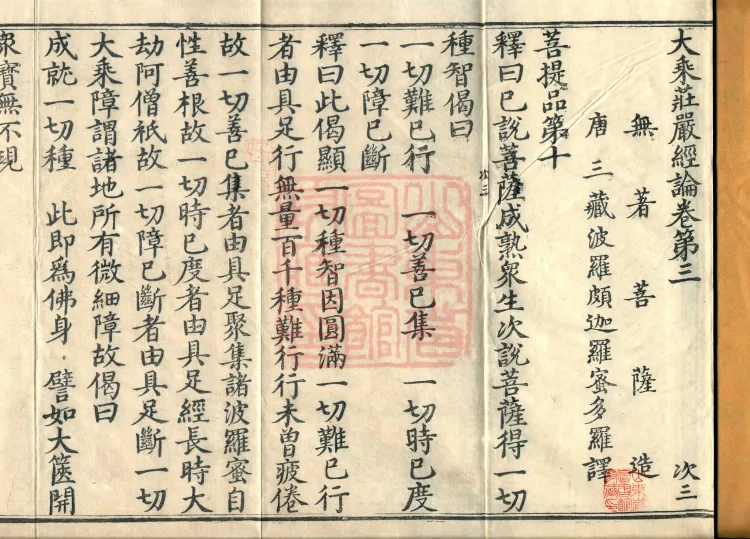 大乘莊嚴經論卷第三 次三
無著菩薩造
唐三藏波羅頗迦羅蜜多羅譯
菩提品第十
釋曰已說菩薩成熟衆生次說菩薩得一切
種智偈曰
一切難已行 一切善已集 一切時已度
一切障已斷
釋曰此偈顯一切種智因圓滿一切難已行
者由具足行無量百千種難行行未曾疲倦
故一切善已集者由具足聚集諸波羅蜜自
性善根故一切時已度者由具足經長時大
劫阿僧祇故一切障已斷者由具足斷一切
大乘障謂諸地所有微細障故偈曰
成就一切種 此即爲佛身 譬如大篋開
衆寶無不現
次三